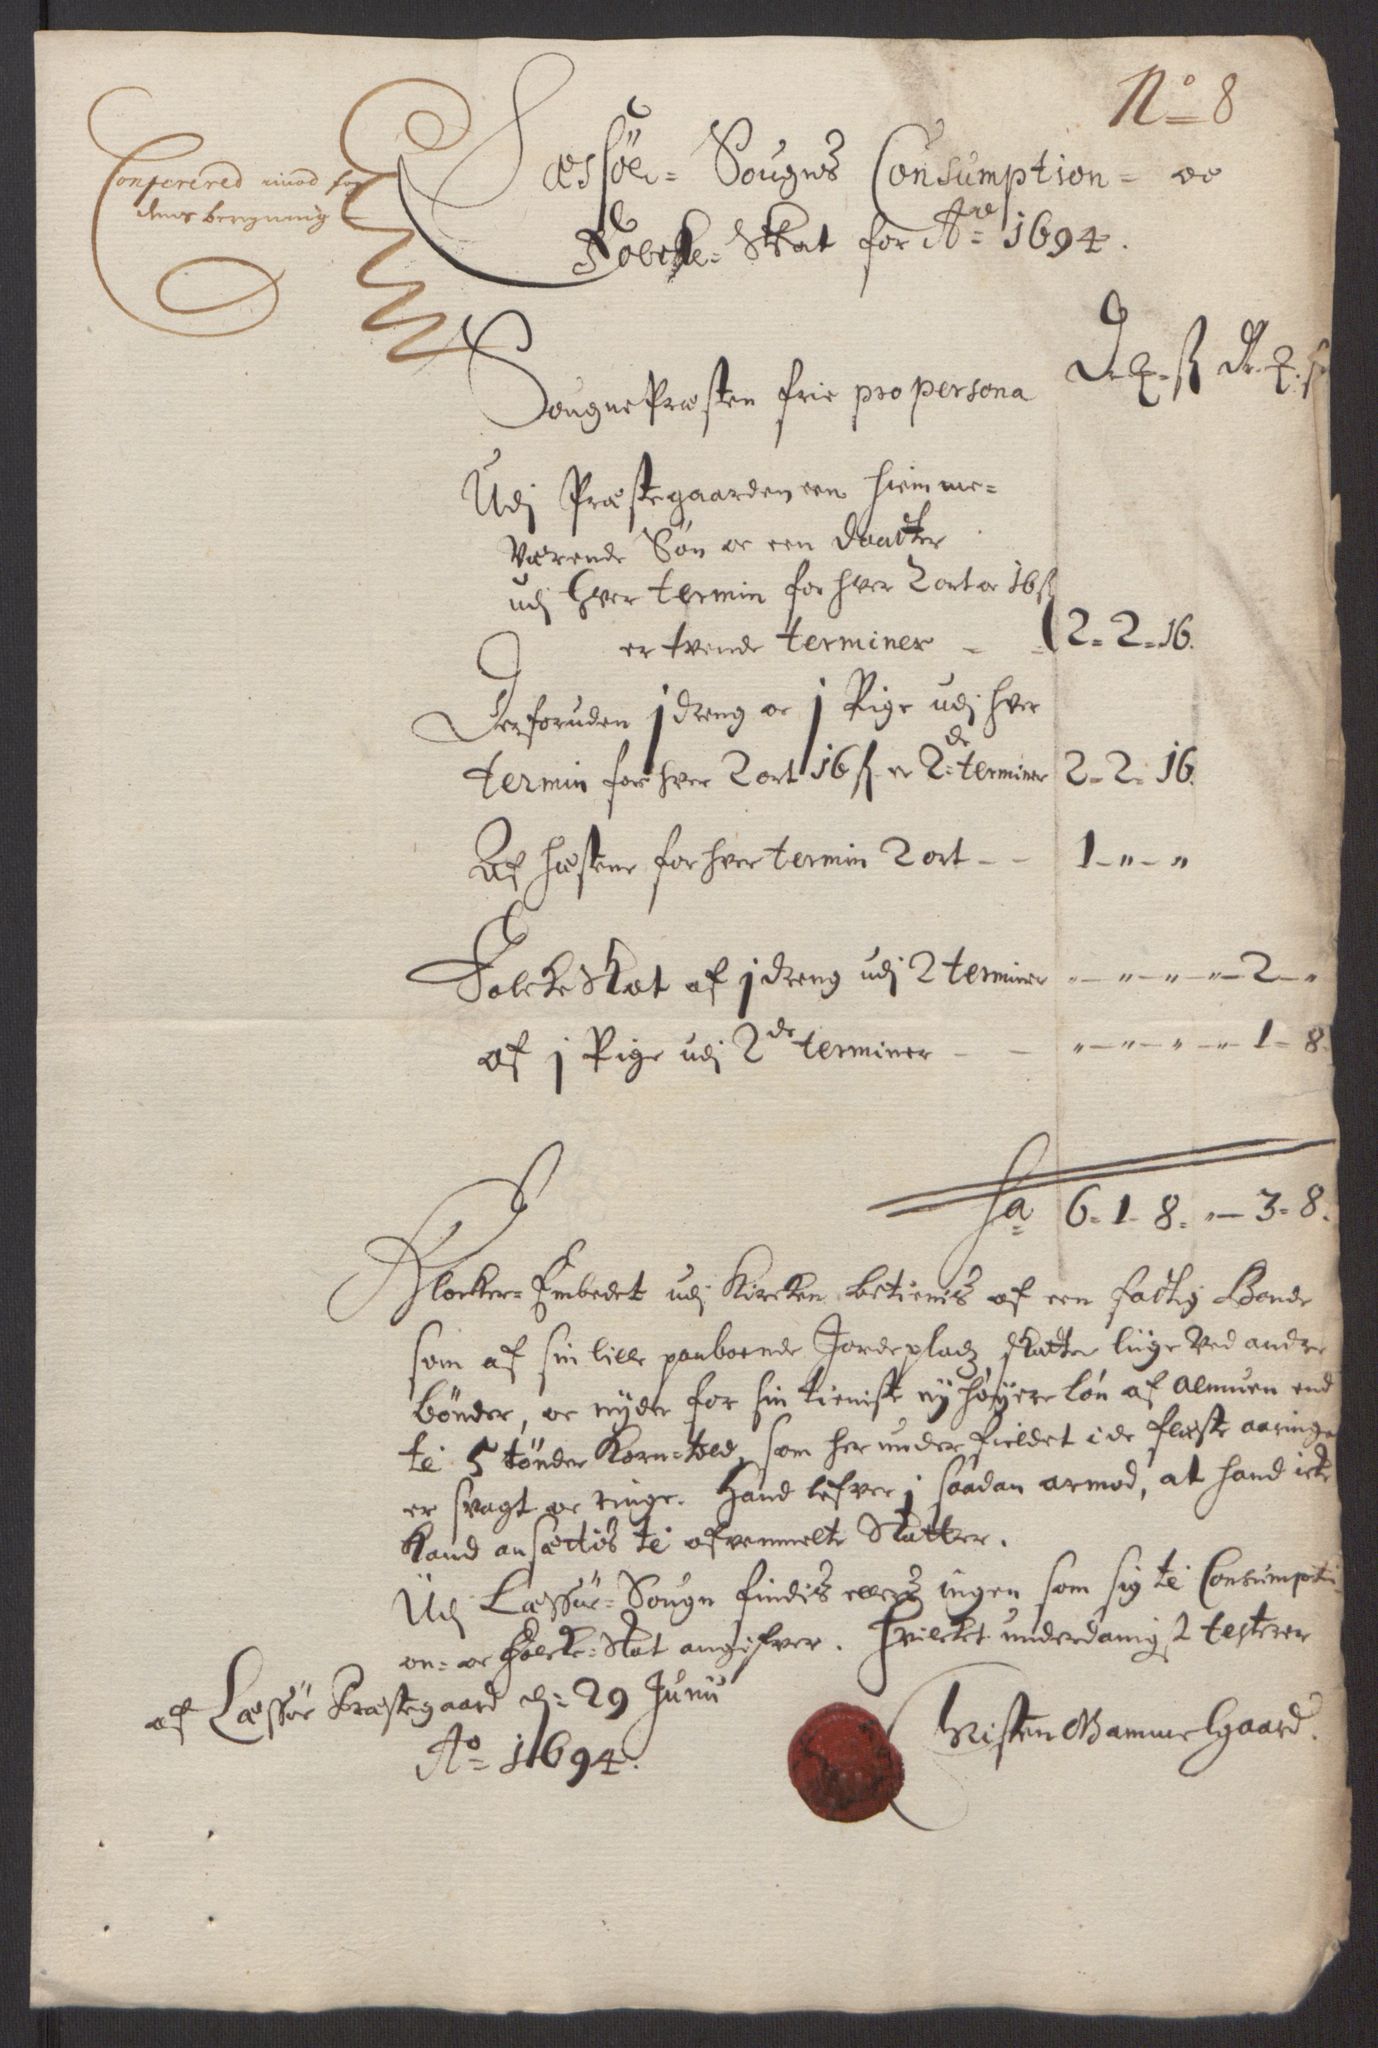 No 8
Conferered imod for
dens beregning
Læssöe= Sougns Consumption= oc
Folcke= Skat for Are 1694.
Dr. ꝶ. ß Dr. ꝶ. ß
SougnePræsten frie pro persona
Udj Præstegaarden een hiemme=
værende Søn oc een daatter
udj hver termin for hver 2 ort oc 16 ß
er tvende terminer - - 2= 2= 16.
Derforuden j dreng oc j Pige udj hver
termin for hver 2 ort 16 ß er 2de terminer 2= 2= 16.
Af hæstene for hver termin 2 ort - - 1 - " - "
Folcke Skat af j dreng udj 2 terminer " - " - " - " - 2 - "
af j Pige udj 2de terminer - - " - " - " - " - 1 - 8.
Sa 6= 1- 8. " - 3= 8.
Klocker= Embedet udj Kircken betienis af een fattig Bonde
som af sin lille paaboende Jordeplads skatter liige ved andre
bönder, oc nyder for sin tieniste ey høyere lön af Almuen end
te 5 tönder Korn=told, som her under fieldet i de fleste aaringe
er svagt oc ringe. Hand lefver j saadan armod, at hand icke
kand ansættis te ofvenmelte Skatter.
Udj Læssöe= Sougn findis ellers ingen som sig te Consumpti
on= oc Folcke= Skat angifver. Hvilcket underdanigst testerer
af Læssöe Præstegaard d: 29 Junii
Ao 1694.
Christen Gammelgaard.